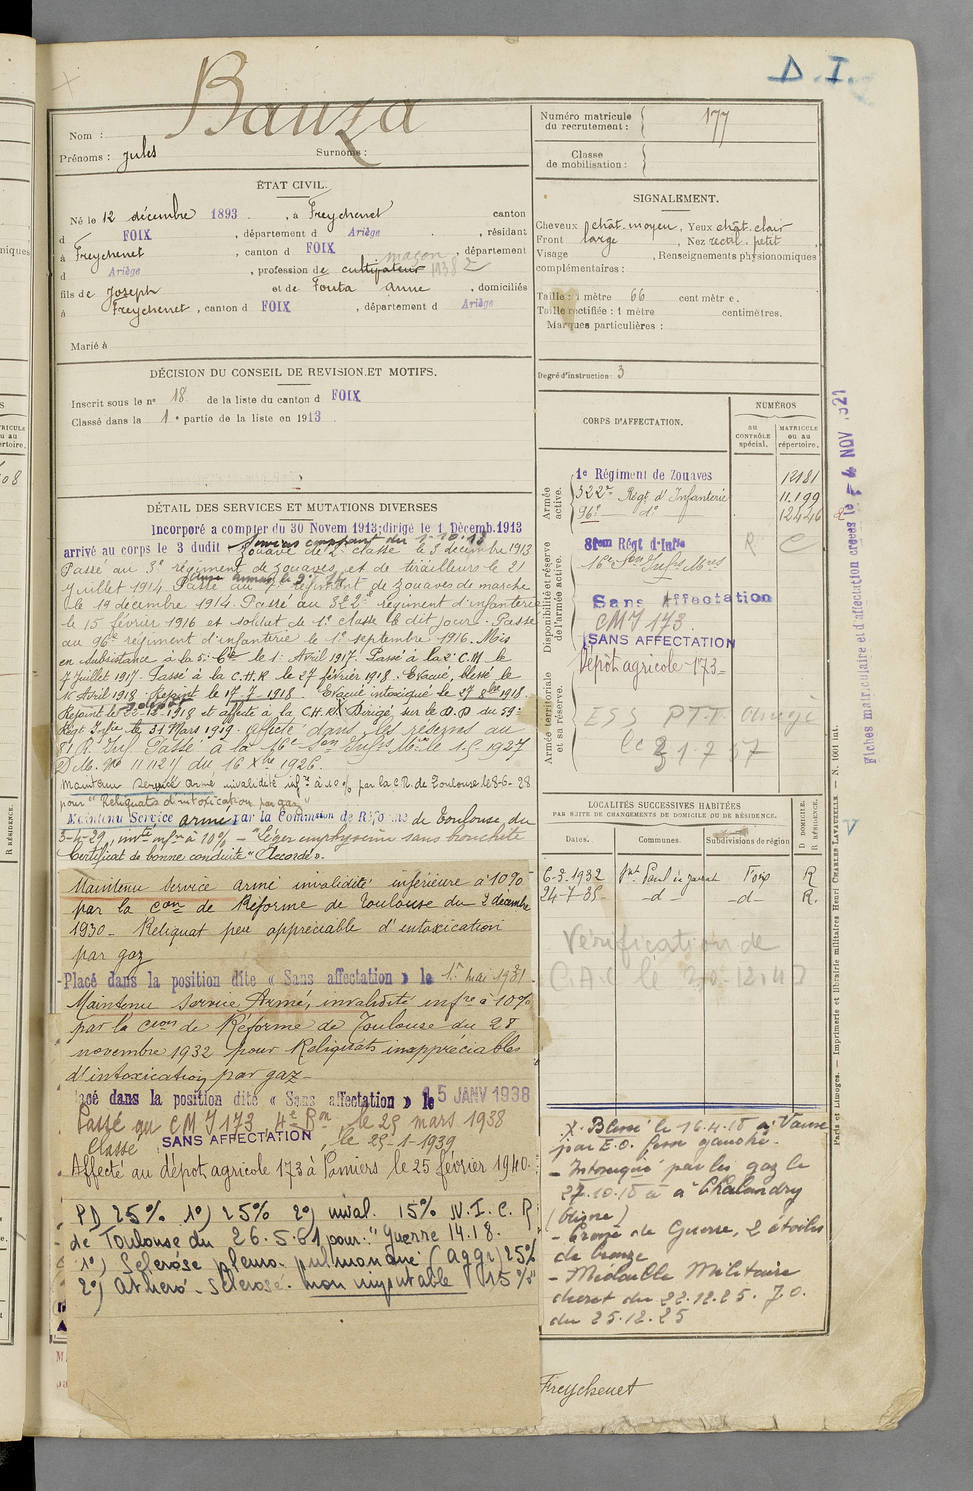 D.I.
Bauza
Nom :
Prénoms : Jules Surnoms :
Numéro matricule du recrutement : 177
Classe de mobilisation :
ÉTAT CIVIL.
Né le 12 décembre 1893, à Freychenet canton
d FOIX, département d Ariège, résidant
à Freychenet, canton d FOIX, département
maçon
d Ariège, profession de cultivateur 1938
fils de Joseph et de Fouta Anne, domiciliés
à Freychenet, canton d FOIX, département d Ariège
Marié à
SIGNALEMENT.
Cheveux chât. moyen, Yeux chât. clair
Front large, Nez rectil. petit
Visage , Renseignements physionomiques
complémentaires :
Taille : 1 mètre 66 centimètre.
Taille rectifiée : 1 mètre centimètres.
Marques particulières :
Degré d'instruction : 3
DÉCISION DU CONSEIL DE REVISION ET MOTIFS.
Inscrit sous le n° 18 de la liste du canton d FOIX
Classé dans la 1e partie de la liste en 1913
DÉTAIL DES SERVICES ET MUTATIONS DIVERSES
Incorporé a compter du 30 Novem. 1913; dirigé le 1 Décemb. 1913
Services comptant du 1-10-13
arrivé au corps le 3 dudit Zouave de 2e classe le 3 décembre 1913
Passé au 3e régiment de zouaves et de tirailleurs le 21
Juillet 1914. Passé au régiment de zouaves de marche
le 19 décembre 1914. Passé au 322e régiment d'infanterie
le 15 février 1916 et soldat de 1e classe le dit jour. Passé
au 96e régiment d'infanterie le 1e septembre 1916. Mis
en subsistance à la 5e Cie le 1e Avril 1917. Passé à la 2e C.M. le
7 Juillet 1917. Passé à la C.H.R. le 27 février 1918. Evacué, blessé le
16 Avril 1918. Rejoint le 17-7-1918. Evacué intoxiqué le 27 8bre 1918.
Rejoint le 22-12-1918 et affecté à la C.H.R. Dirigé sur le D.D du 59e
Régt Infie le 31 Mars 1919. Affecté dans les réserves au
81 R. Inf. Passé à la 16e Son Infrs Mres le 1.5 1927
D.M. No 11 112 du 16 Xbre 1926.
Maintenu Service armé invalidité infre à 10% par la C.R. de Toulouse le 8-6-28
pour "Reliquats d'intoxication par gaz"
Maintenu Service armé par la Commission de Réforme de Toulouse, du
3-4-29, invté infre à 10% - "léger emphysème sans bronchite
Certificat de bonne conduite "Accordé".
Maintenu Service armé invalidité inférieure à 10%
par la Con de Réforme de Toulouse du 2 décembre
1930 - Reliquat peu appréciable d'intoxication
par gaz
Placé dans la position dite « Sans affectation » le 1er mai 1931
Maintenu Service Armé, invalidité infre à 10%
par la Cion de Réforme de Toulouse du 28
novembre 1932 pour Reliquats inappréciables
d'intoxication par gaz -
lacé dans la position dite « Sans affectation » le 15 JANV 1938
Passé au CMJ 173 4e Bon, le 25 mars 1938
Classé SANS AFFECTATION, le 25-1-1939
Affecté au dépot agricole 173 à Pamiers le 25 février 1940.
PD 25% 1°) 25% 2°) inval. 15% N.I. C.R
de Toulouse du 26.5.61 pour: "Guerre 14.18.
1°) Sclérose pleuro-pulmonaire (aggr) 25%
2°) Athéro-sclérose. non imputable (15%"
CORPS D'AFFECTATION.
NUMÉROS
AU CONTRÔLE SPÉCIAL.
MATRICULE OU AU RÉPERTOIRE.
Armée active.
1e Régiment de Zouaves 12181
322e Régt d'Infanterie 11.199
96e do 12446
Disponibilité et réserve de l'armée active.
81em Régt d'Infie R C
16e Son Infrs Mres
Sans Affectation
CMJ 173
SANS AFFECTATION
Dépôt agricole 173
Armée territoriale et sa réserve.
ESS PTT Ariège
le 31.7.57
LOCALITÉS SUCCESSIVES HABITÉES
PAR SUITE DE CHANGEMENTS DE DOMICILE OU DE RÉSIDENCE.
Dates. Communes. Subdivisions de région. D DOMICILE. R RÉSIDENCE.
6-3-1932 St Paul de Jarrat Foix R
24-7-35 -d- -d- R.
Vérification de
C.A.C le 30.12.47
X. Blessé le 16.4.18 à Vaux
par E.O. fesse gauche.
- Intoxiqué par les gaz le
27.10.18 à Chalandry
(Aisne)
- Croix de Guerre, 2 étoiles
de bronze
- Médaille Militaire
décret du 22.12.25. J.O.
du 25.12.25
Freychenet
Fiches matriculaire et d'affectation créées le 4 NOV. 1921
Paris et Limoges. — Imprimerie et librairie militaires Henri CHARLES-LAVAUZELLE. — N. 1001 int.
R RÉSIDENCE.